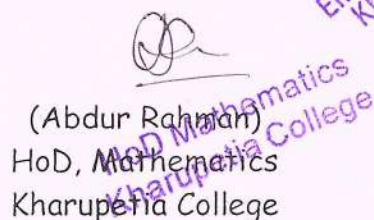 (Abdur Rahman)
HoD, Mathematics
Kharupetia College
HoD Mathematics
Kharupetia College